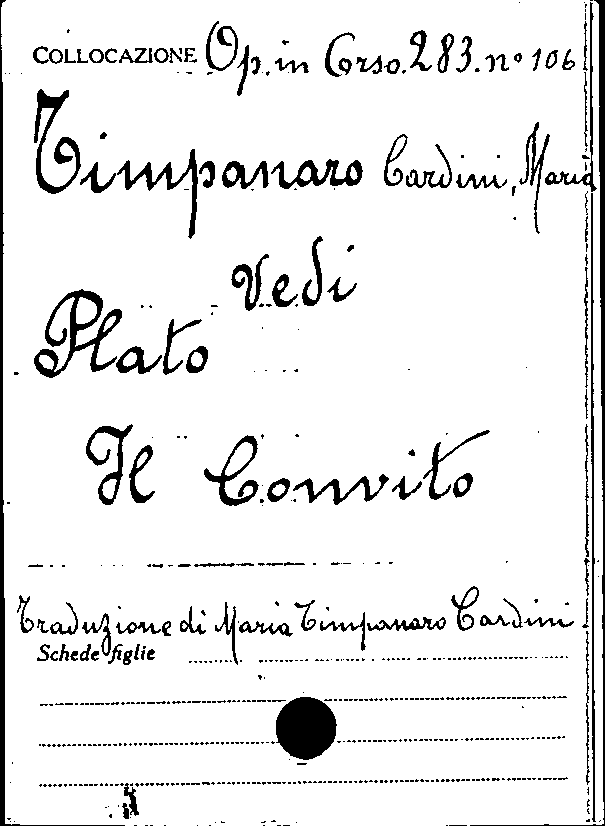 COLLOCAZIONE Op. in Corso. 283. n° 106
Timpanaro Cardini, Maria
Vedi
Plato
Il Convito
Traduzione di Maria Timpanaro Cardini.
Schede figlie